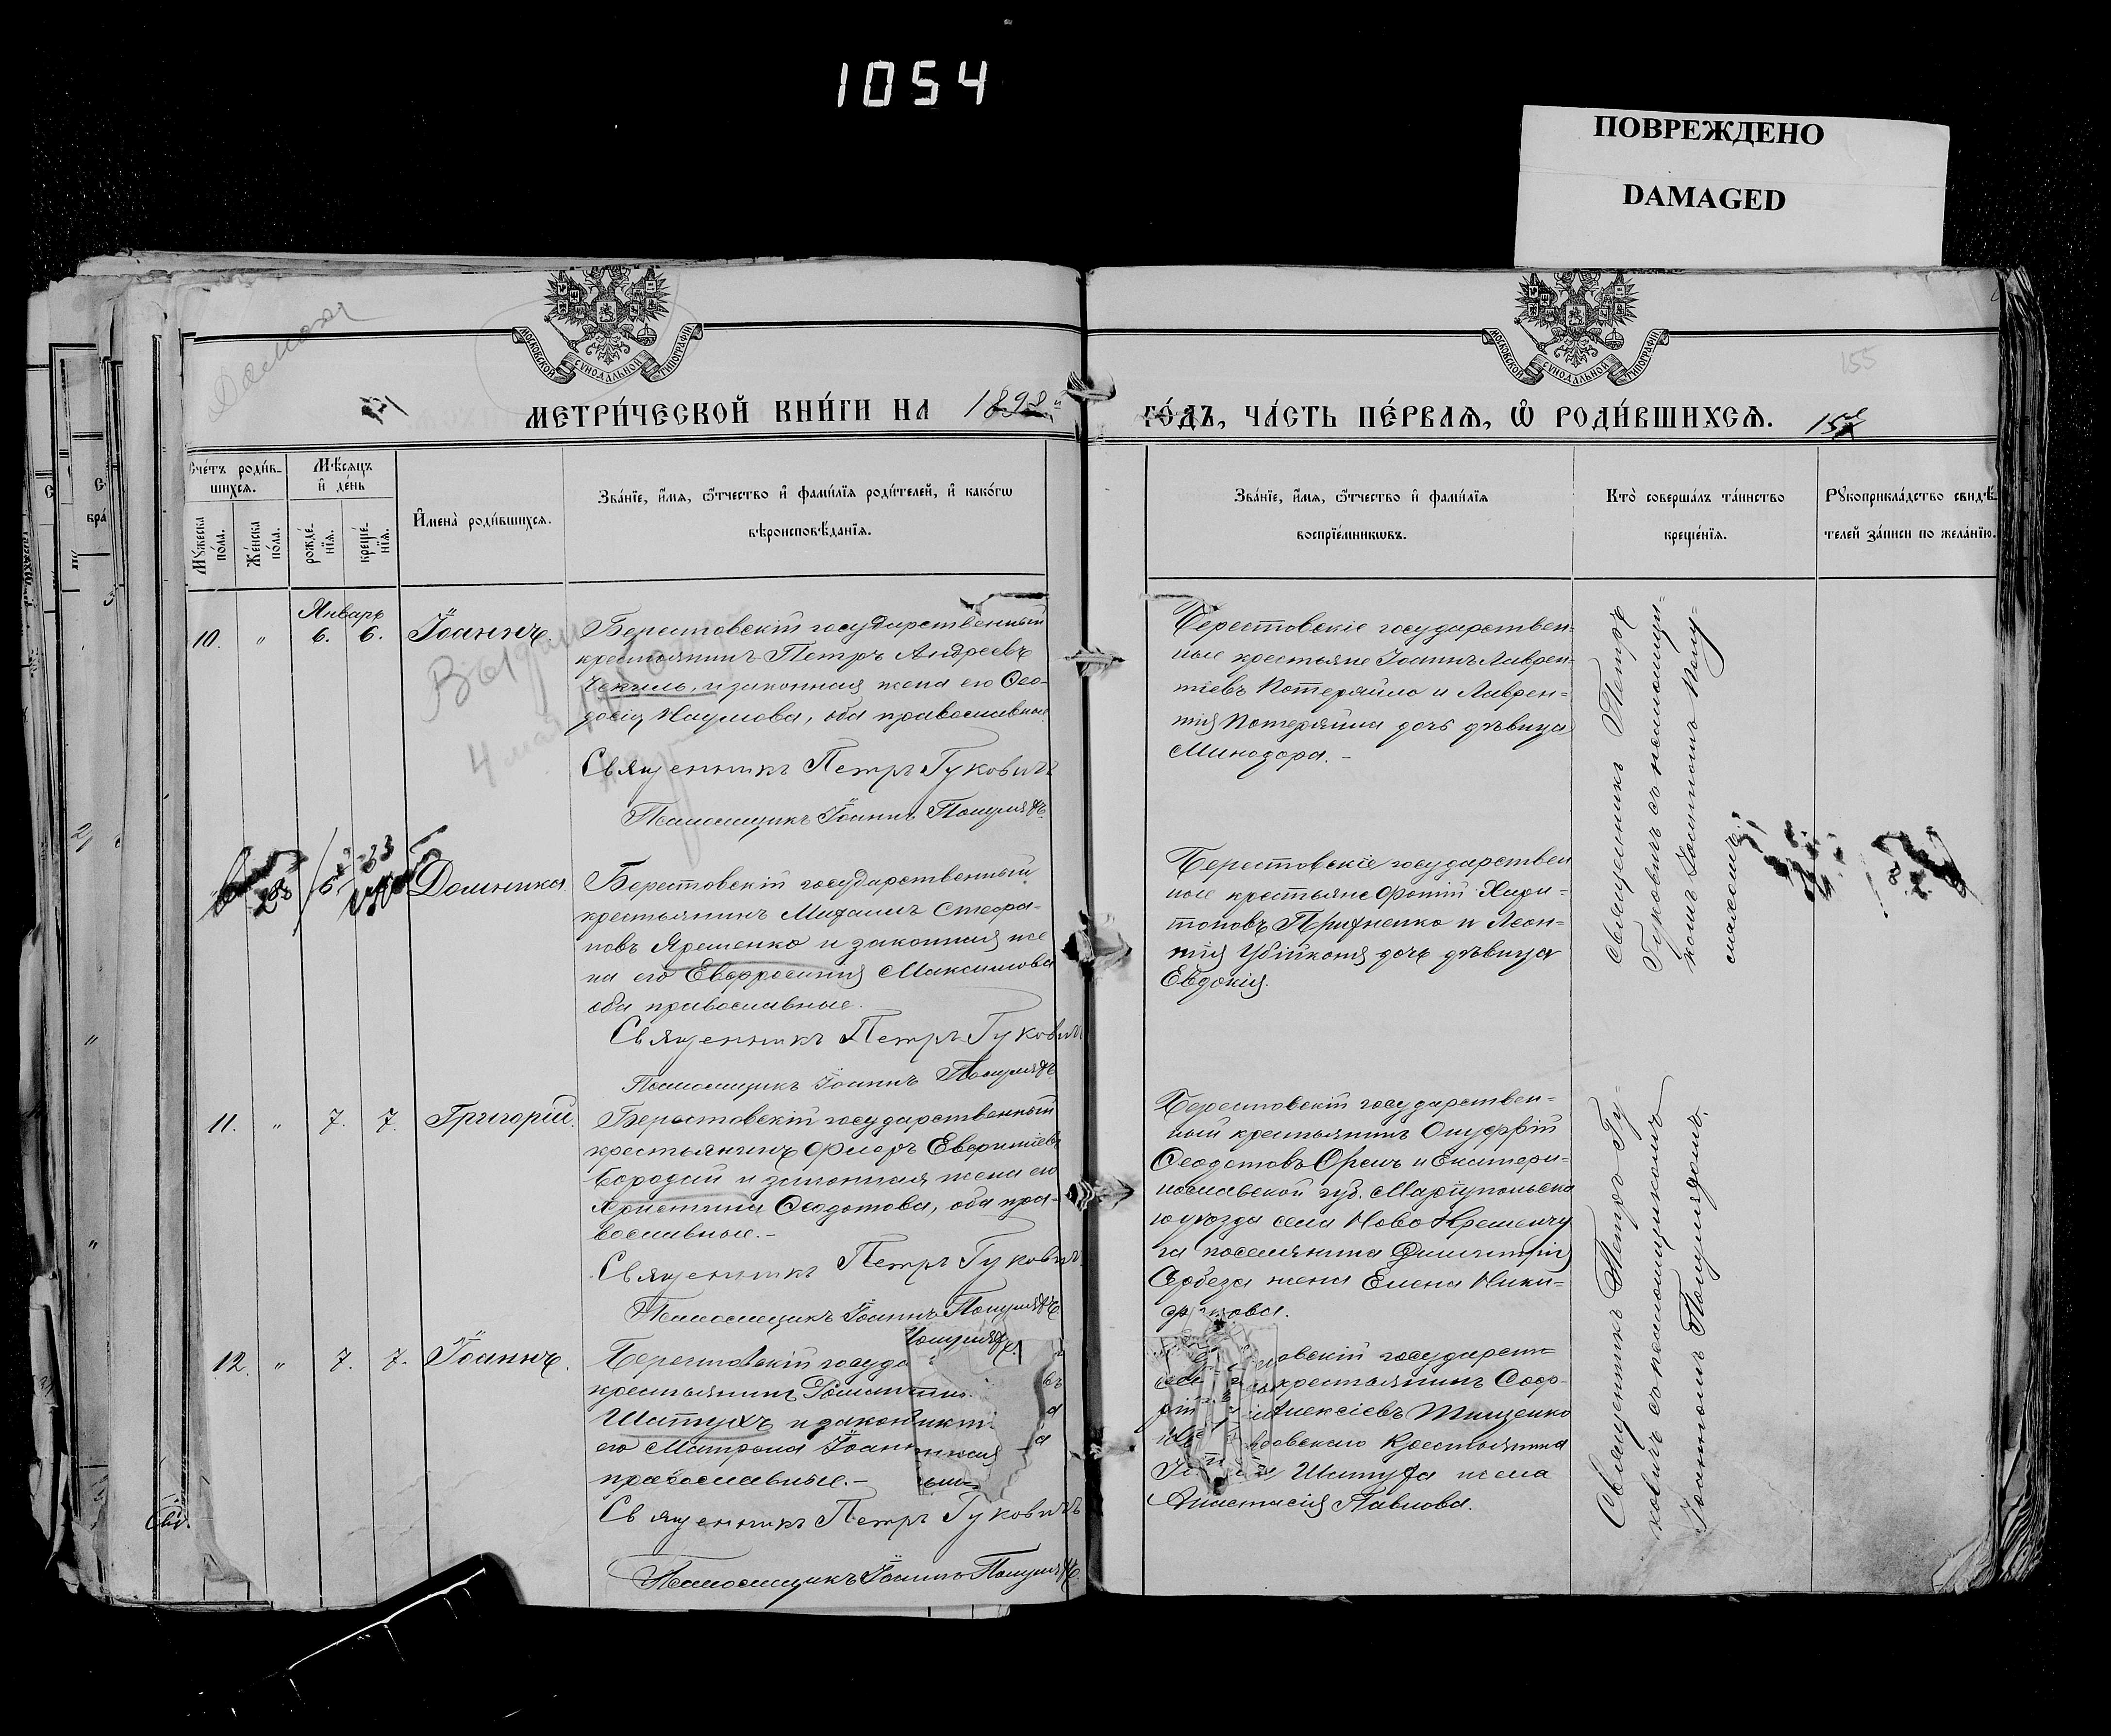 1054
ПОВРЕЖДЕНО
DAMAGED
МОСКОВСКОЙ СУНОДАЛЬНОЙ ТИПОГРАФІИ
МОСКОВСКОЙ СУНОДАЛЬНОЙ ТИПОГРАФІИ
155
МЕТРИ́ЧЕСКОЙ КНИ́ГИ НА 1898 й
ГО́ДЪ, ЧА́СТЬ ПЕ́РВАѦ, Ѡ РОДИ́ВШИХСѦ.
Счéтъ роди́в-
шихсѧ.
Мѣ́сѧцъ
и҆ де́нь
Мꙋ́жеска
по́ла.
Же́нска
по́ла.
рожде́-
нїѧ.
креще́-
нїѧ.
И҆мена̀ роди́вшихсѧ.
Зва́нїе, и҆́мѧ, ѻ҆́тчество и҆ фами́лїѧ роди́телей, и҆ како́гѡ
вѣроисповѣ́данїѧ.
Зва́нїе, и҆́мѧ, ѻ҆́тчество и҆ фами́лїѧ
воспрїе́мникѡвъ.
Кто̀ соверша́лъ та́инство
креще́нїѧ.
Рꙋкоприкла́дство свидѣ́-
телей за́писи по жела́нїю.
Январь
10. " 6. 6. Іоаннъ.
Берестовскій государственный
крестьянинъ Петръ Андреевъ
Чекиль, и законная жена его Ѳео-
досія Наумова, оба православные
Священникъ Петръ Гуковичъ
Псаломщикъ Іоаннъ
Берестовскіе государствен-
ные крестьяне Іоаннъ Лаврен-
тіевъ Потеряйло и Лаврен-
тія Потеряйла дочь дѣвица
Минодора. -
Священникъ Петръ
Гуковичъ съ псаломщи-
комъ Іоанномъ
Домника
Берестовскій государственный
крестьянинъ Михаилъ Стефа-
новъ Яременко и законная же
на его Евфросинія Максимова
оба православные.
Священникъ Петръ Гуковичъ
Псаломщикъ Іоаннъ
Берестовскіе государствен
ные крестьяне Фотій Хари-
тоновъ и Леон-
тія дочь дѣвица
Евдокія.
11. " 7. 7. Григорій.
Берестовскій государственный
крестьянинъ Флоръ
Бородай и законная жена его
Христина Ѳеодотова, оба пра-
вославные. -
Священникъ Петръ Гуковичъ
Псаломщикъ Іоаннъ
Берестовскій государствен-
ный крестьянинъ Онуфрій
Ѳеодотовъ и Екатери-
нославской губ. Маріупольска
го уѣзда села Ново Кременчу
га поселянина Димитрія
жена Елена Ники-
форова.
Священникъ Петръ Гу-
ковичъ съ псаломщикомъ
Іоанномъ
12. " 7. 7. Іоаннъ.
Берестовскій госуда
крестьянинъ
Шатухъ и законная
его Матрона Іоанн
православные. -
Священникъ Петръ Гуковичъ
Псаломщикъ Іоаннъ
овскій государст=
крестьянинъ Соф-
Алексіевъ Тищенко
крестьянина
Шатуха жена
Анастасія Павлова.